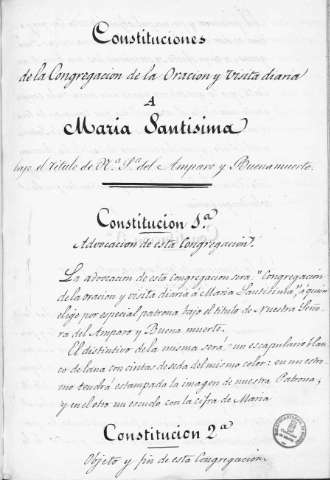 Constituciones
de la Congregacion de la Oracion y Visita diaria
A
Maria Santisima
bajo el titulo de N.ª S.ª del Amparo y Buena muerte.
Constitucion 1.ª
Advocacion de esta Congregacion.
La advocacion de esta congregacion será, "Congregacion
de la oracion y visita diaria á Maria Santisima", á quien
elige por especial patrona bajo el titulo de Nuestra Seño-
ra del Amparo y Buena muerte.
El distintivo de la misma será: un escapulario blan-
co de lana con cintas de seda del mismo color: en un estre-
mo tendrá estampada la imagen de nuestra Patrona;
y en el otro un escudo con la cifra de Maria
Constitucion 2ª
Objeto y fin de esta Congregacion.